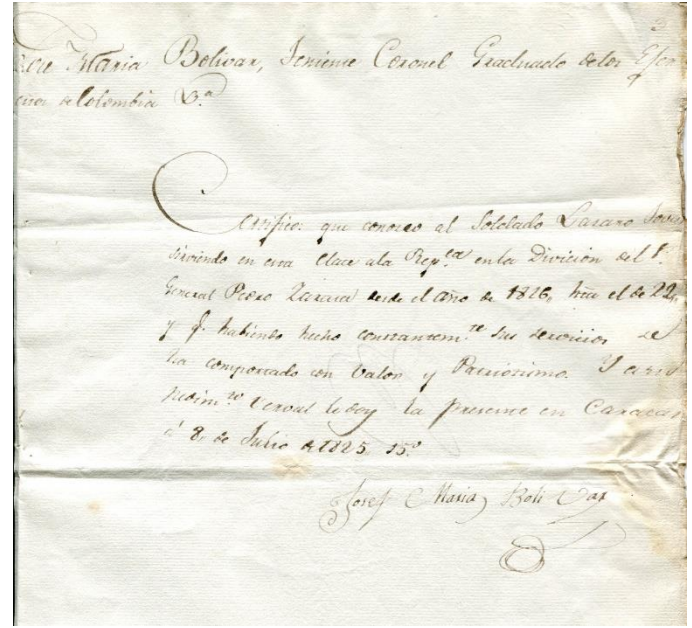 Jose Maria Bolivar, Teniente Coronel Graduado delos Eger
citos de Colombia &.ª
Certifico: que conosco al Soldado Lazaro
sirviendo en esta Clace ala Rep.ca en la Divicion del S.
General Pedro Zaraza desde el año de 1816, hta el de 22,
y q. habiendo hecho constantem.te sus servicios se
ha comportado con Valor y Patriotismo. Y
pedim.to verval le doy la presente en Caracas
á 8, de Julio de 1825. 15.º
Josef Maria Bolivar